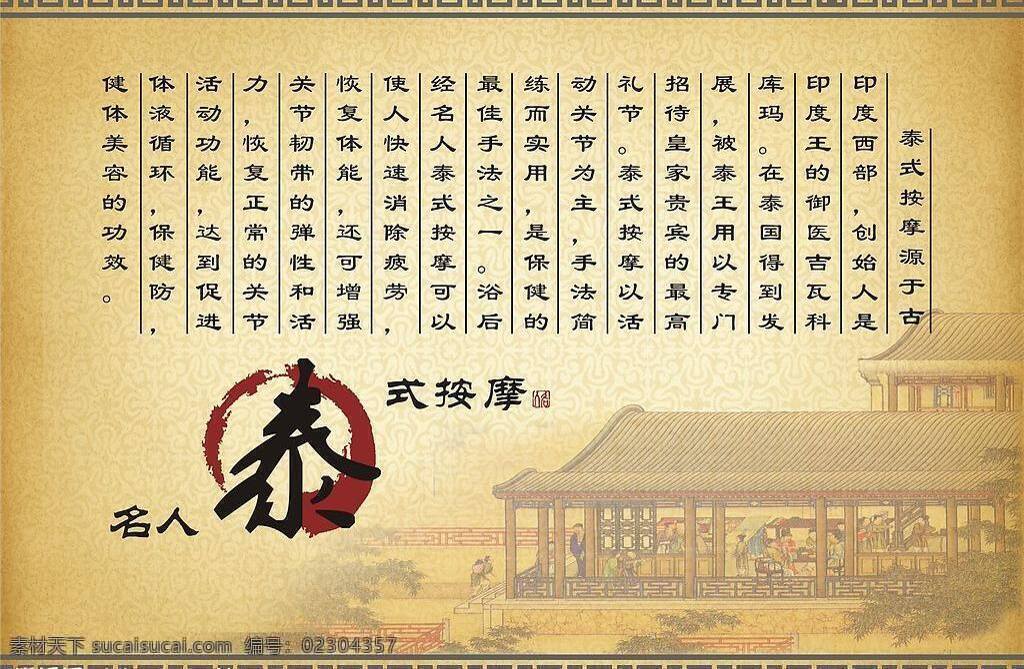 泰式按摩源于古
印度西部，创始人是
印度王的御医吉瓦科
库玛。在泰国得到发
展，被泰王用以专门
招待皇家贵宾的最高
礼节。泰式按摩以活
动关节为主，手法简
练而实用，是保健的
最佳手法之一。浴后
经名人泰式按摩可以
使人快速消除疲劳，
恢复体能，还可增强
关节韧带的弹性和活
力，恢复正常的关节
活动功能，达到促进
体液循环，保健防，
健体美容的功效。
名人泰式按摩
素材天下 sucaisucai.com 编号：02304357